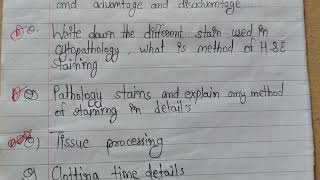 and advantage and disadvantage
Q. Write down the different stain used in
cytopathology, what is method of H & E
staining
Q) Pathology stains and explain any method
of staining in details
Q) Tissue processing
Q) Clotting time details